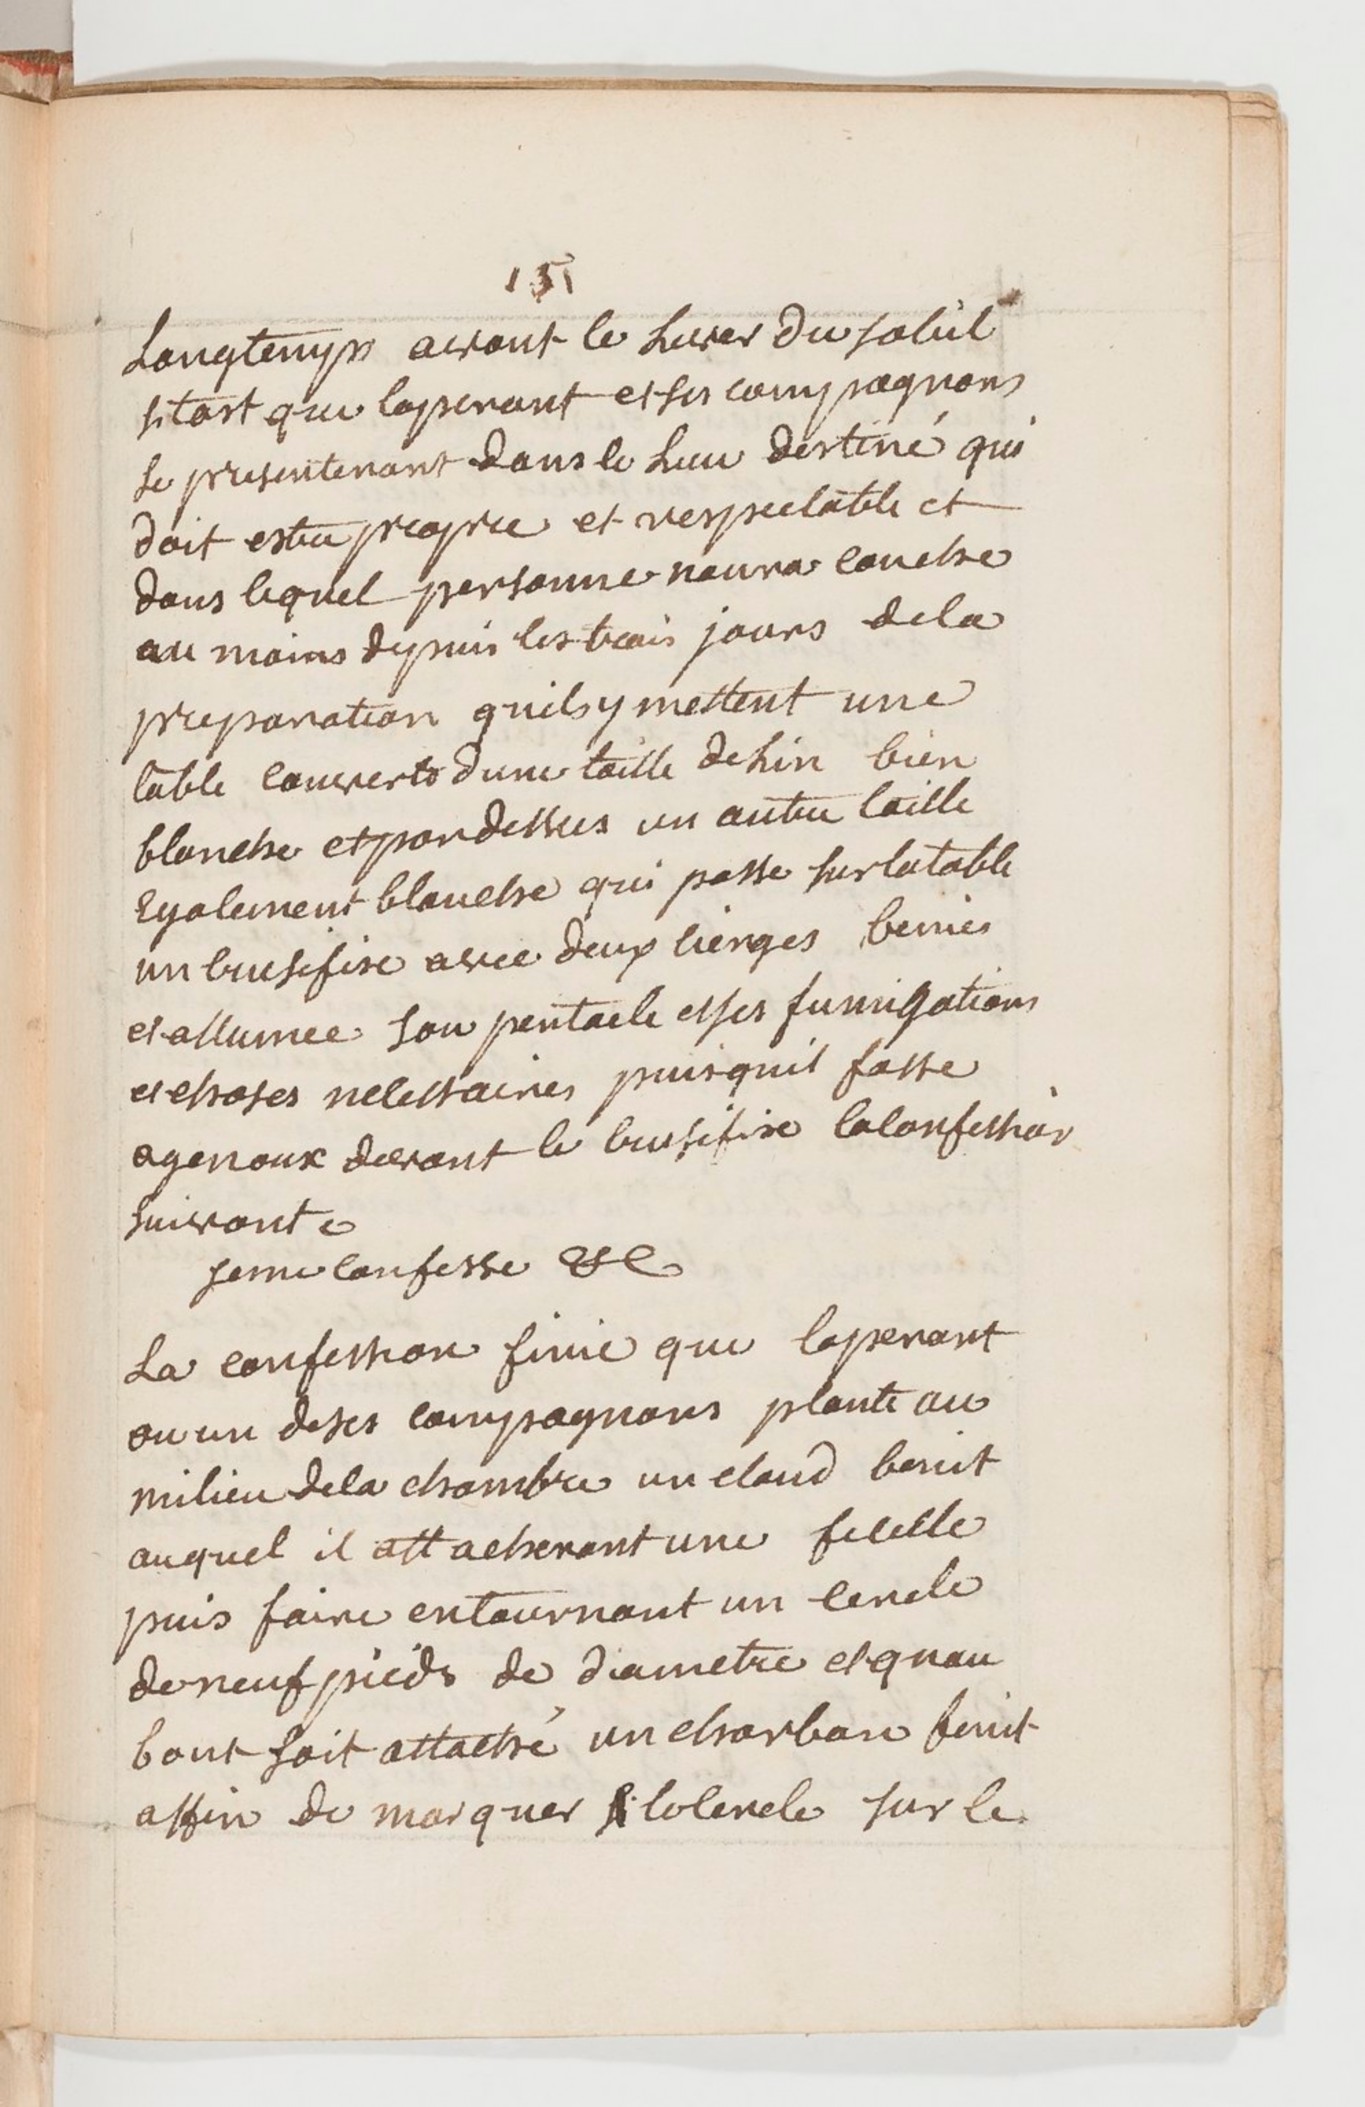 151
Longtemps avant le Lever du soleil
sitost que loperant et ses compagnons
se presenteront dans le Lieu destiné qui
doit estre propre et respectable et
dans lequel personne naura couché
au moins depuis les trois jours dela
preparation quils y mettent une
table couverte dune toille de Lin bien
blanche et par dessus un autre toille
Egalement blanche qui passe sur la table
un crusifixe avec deux cierges benies
et allumee son pentacle et ses fumigations
et choses necessaires puis quil fasse
a genoux devant le crusifixe la confession
suivante
je me confesse &c
La confession finie que loperant
ou un de ses compagnons plante au
milieu dela chambre un cloud benit
auquel il attacheront une ficelle
puis faire en tournant un cercle
de neuf pieds de diametre et quau
bout soit attaché un charbon benit
affin de marquer le cercle sur le